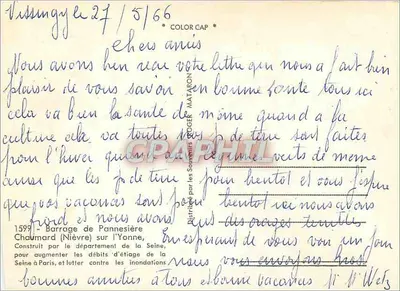 le 27/5/66
* COLOR CAP *
Chers amis
Nous avons bien reçu votre lettre qui nous a fait bien
plaisir de vous savoir en bonne santé tous ici
cela va bien la santé de même quand a la
culture cela va toutes nos p de terre sont faites
pour l'hiver de même
ainsi que les p de terre pour bientot et vous j'espere
que vos vacances sont pour bientot ici nous avons
froid et nous avons eus des orages
En esperant de vous voir un jour
nous vous envoyons nos
bonnes amitiés a tous et bonne vacances
Distribué par les Souvenirs ROGER MATARON
GRAPHTIL
1599 - Barrage de Pannesière
Chaumard (Nièvre) sur l'Yonne,
Construit par le département de la Seine,
pour augmenter les débits d'étiage de la
Seine à Paris, et lutter contre les inondations